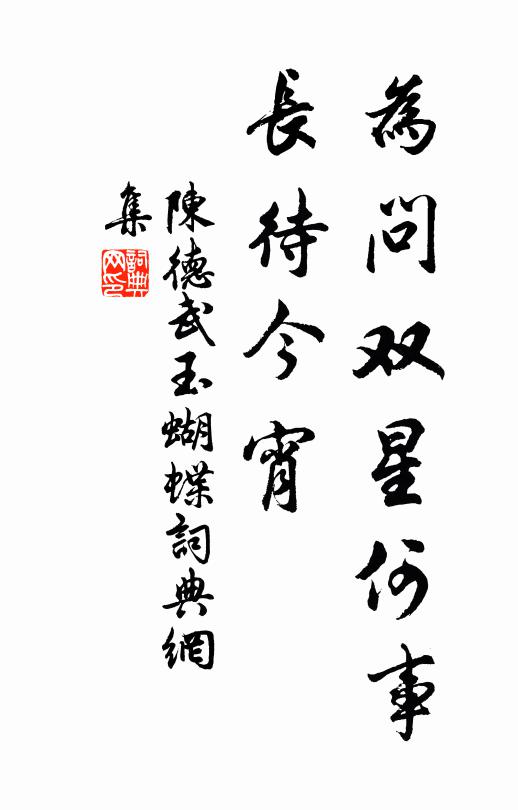 為問双星何事
長待今宵
陳德武玉蝴蝶詞典網
集
詞典
网印